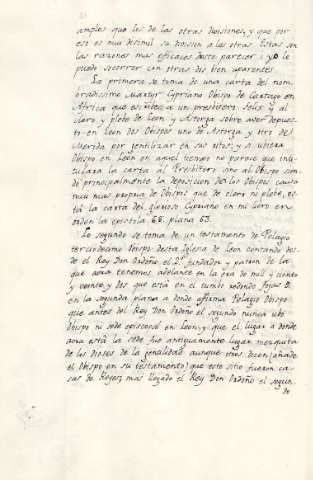 amples que los de las otras divisiones, y que por
eso es mui disimil su division a las otras. Estas son
las razones mas eficaces deste parecer; yo le
puedo socorrer con otras dos bien aparentes.
La primera se toma de una carta del nom-
bradissimo Martyr Cypriano Obispo de Cartago en
Africa que escrive a un presbitero Felix y al
clero y plebe de Leon y Astorga sobre aver depues-
to en Leon dos Obispos uno de Astorga y otro de
Merida por gentilizar en sus vitos; y si ubiera
Obispo en Leon en aquel tiempo no parece que inti-
tulara la carta al Presbitero sino al Obispo sien-
do principalmente la deposicion de los Obispos causa
mui mas propria de Obispo que de clero ni plebe, es-
tá la carta del glorioso Cypriano en mi libro en
orden la epistola 68. plana 63.
Lo segundo se toma de un testamento de Pelagio
terciodecimo Obispo desta Iglesia de Leon contando des-
de el Rey Don Ordoño el 2º fundador y patron de la
que aora tenemos, adelante en la era de mil y ciento
y veinte y dos que está en el tumbo redondo fojas 2.
en la segunda plana a donde afirma Pelagio Obispo
que antes del Rey Don Ordoño el segundo nunca ubo
Obispo ni sede episcopal en Leon, y que el lugar a donde
aora está la sede fue antiguamente lugar mezquita
de los dioses de la gentilidad aunque otros dicen (añade
el Obispo en su testamento) que este sitio fueron ca-
sas de Reyes; mas llegado el Rey Don Ordoño el segun-
do